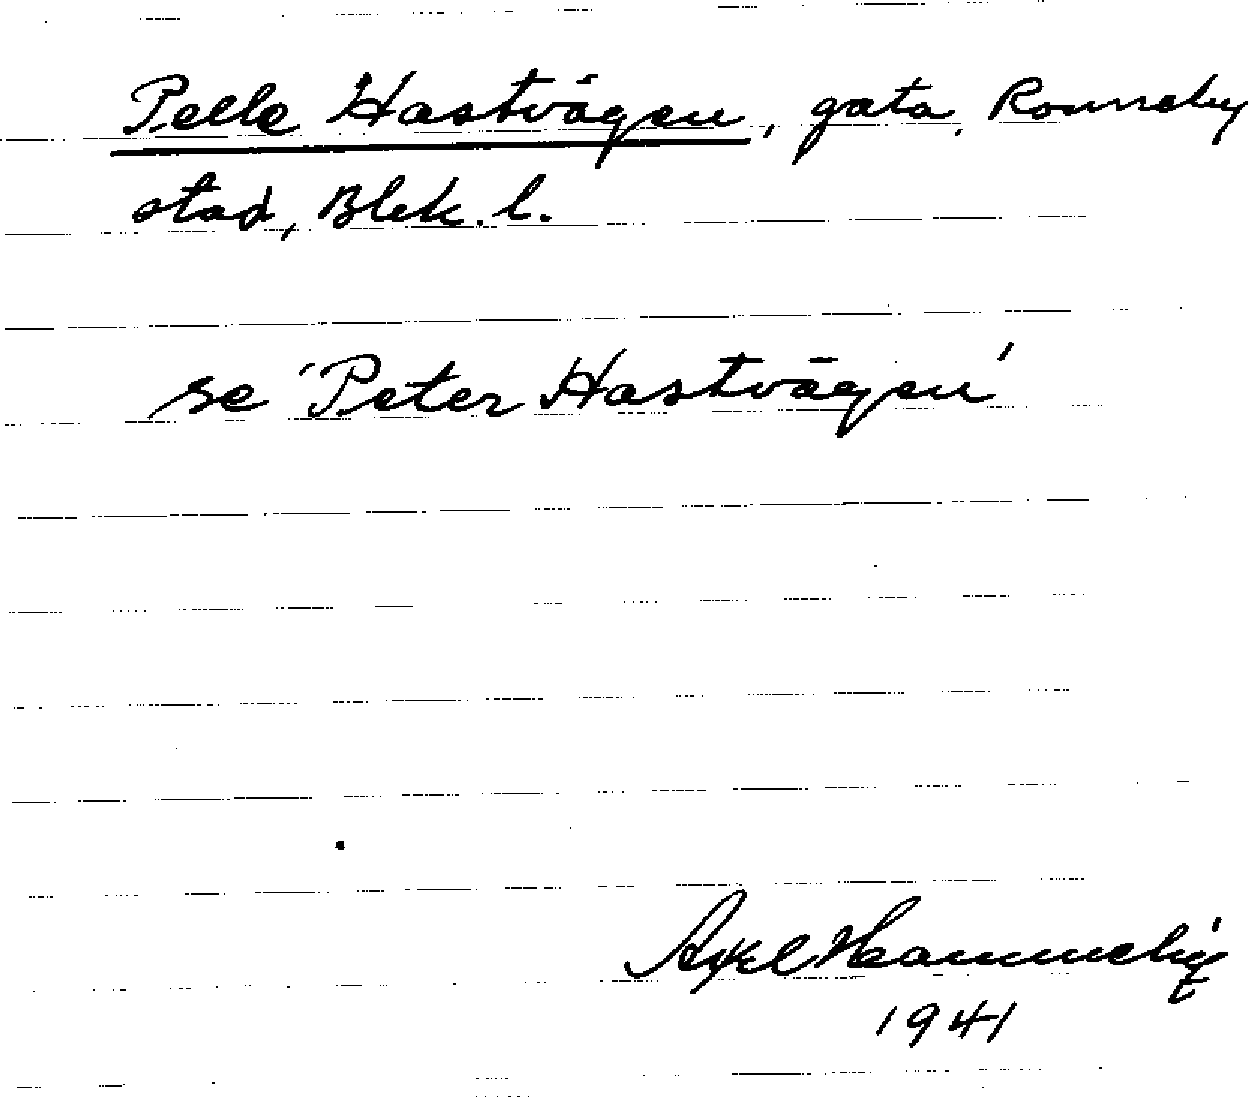 Pelle Hastvägen, gata, Ronneby
stad, Blek. l.
se 'Peter Hastvägen'
Axel
1941